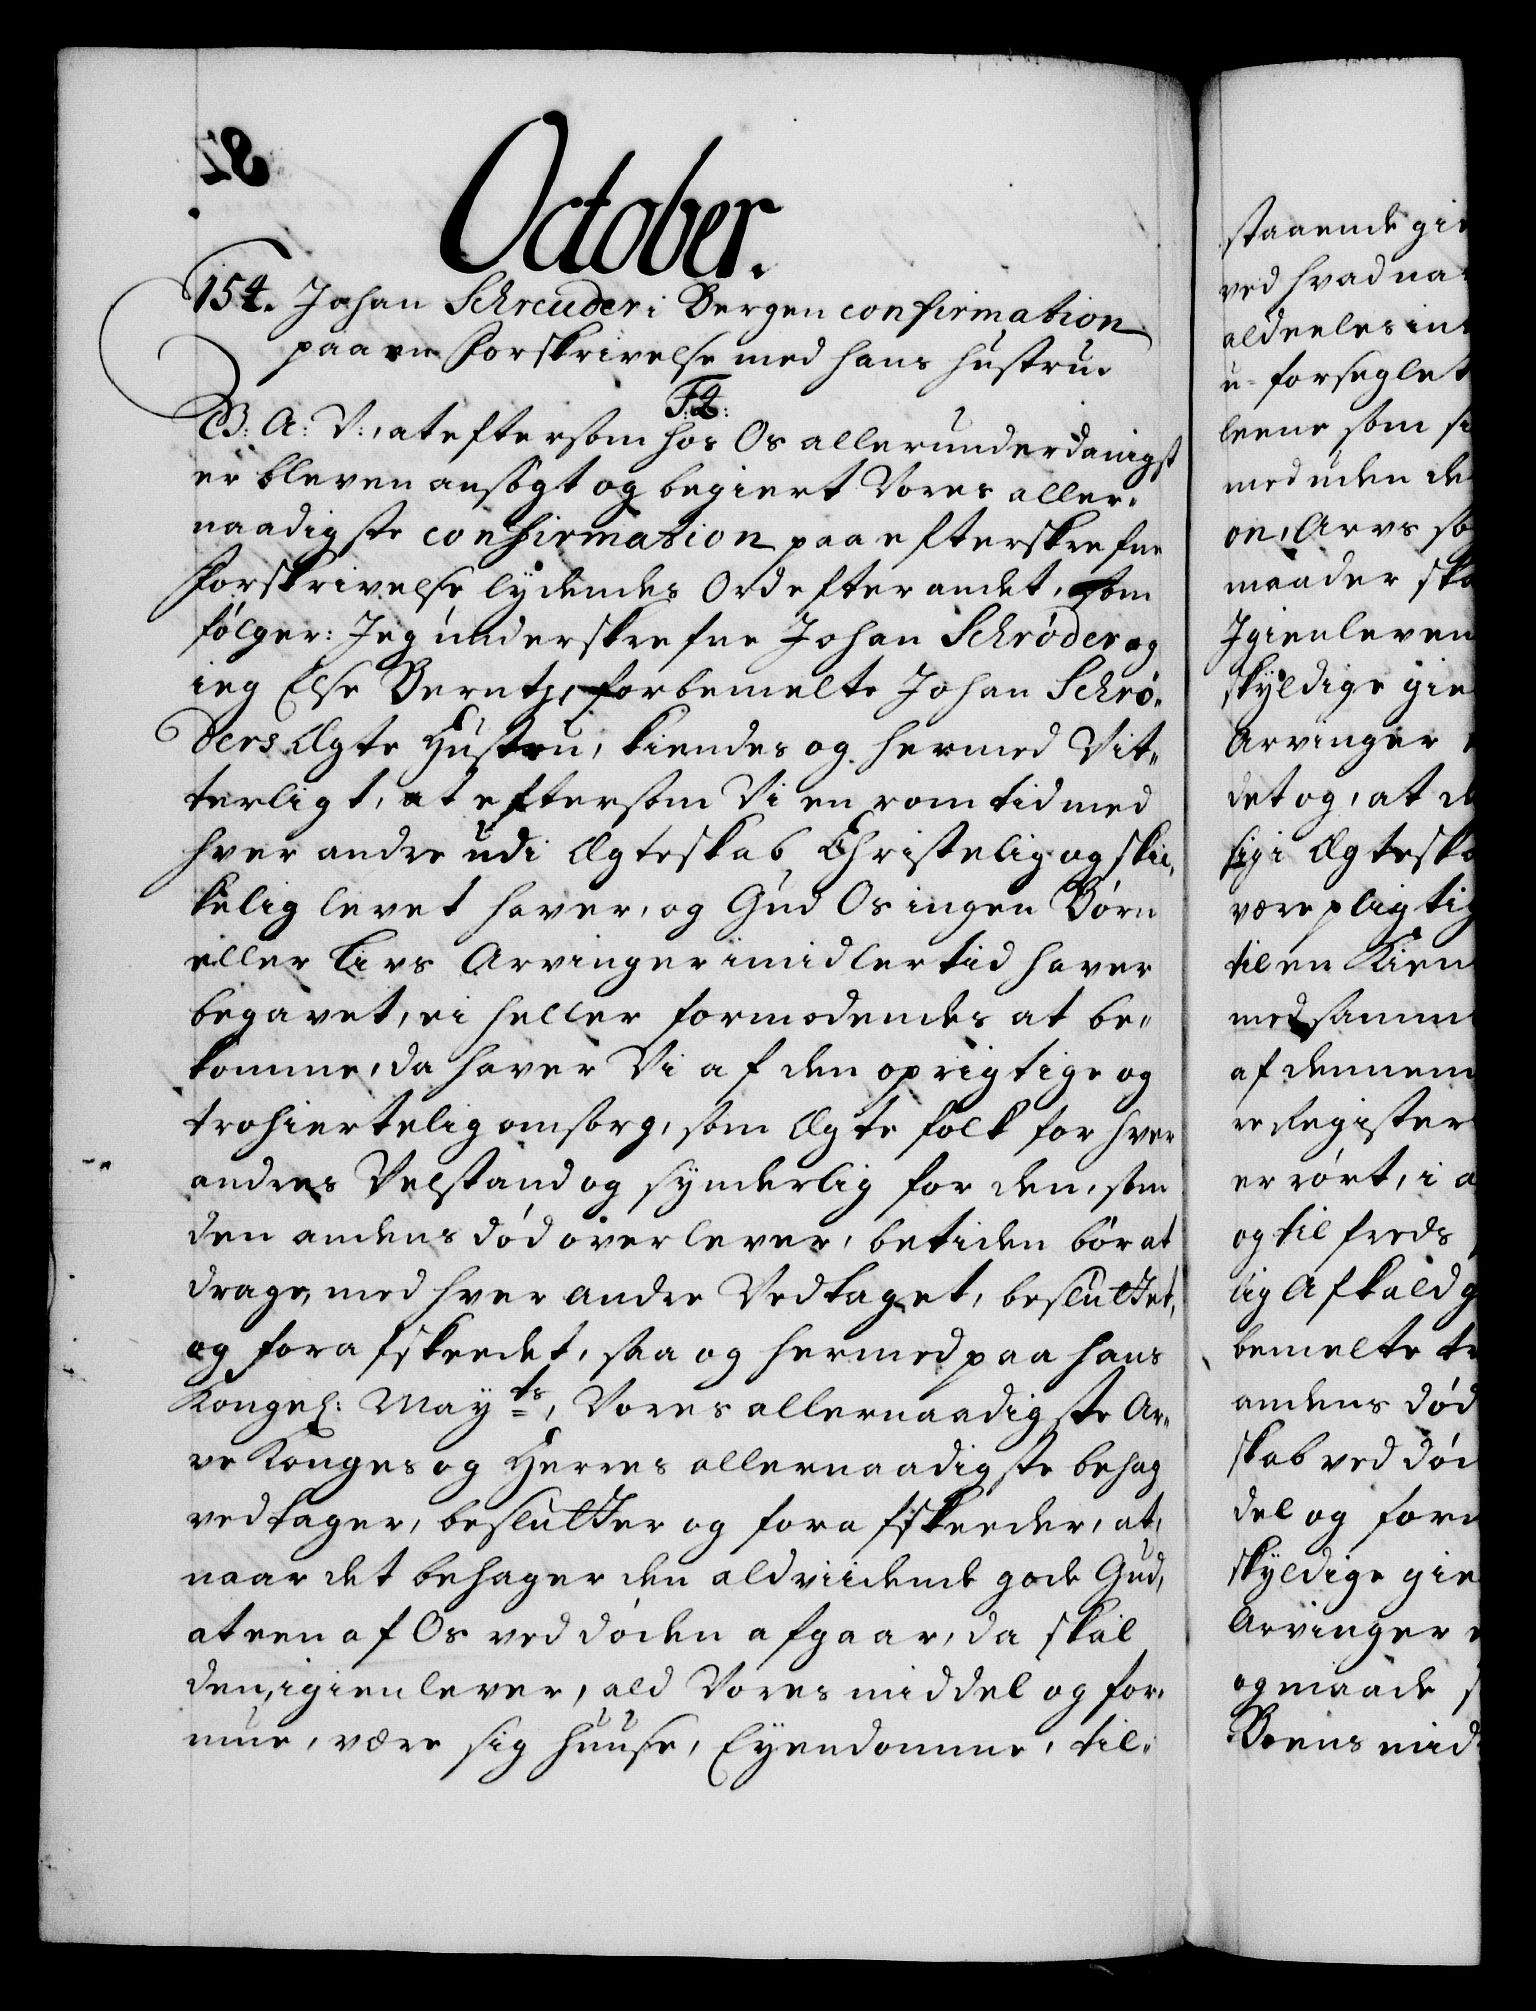 October.
154. Johan Schreuder i Bergen confirmation
paa en Forskrivelse med hans hustru.
F: 4:
G: A: V:, at eftersom hos Os allerunderdanigst
er bleven ansøgt og begiert Vores aller-
naadigste confirmation paa efterskrefne
Forskrivelse lydendes Ord efter andet, som
følger: Jeg underskrefne Johan Schrøder og
ieg Else Berntz, forbemelte Johan Schrø-
ders Ægte Hustru, kiendes og hermed Vit-
terligt, at eftersom Vi en rom tid med
hver andre udi Ægteskab Christelig og skic-
kelig levet haver, og Gud Os ingen Børn
eller Livs Arvinger imidlertid haver
begavet, ei heller formodendes at be-
komme, da haver Vi af den oprigtige og
trohiertelig omsorg, som Ægte folk for hver
andres Velstand og synderlig for den, som
den andens død overlever, betiden bør at
drage, med hver andre Vedtaget, besluttet,
og forafskeedet, saa og hermed paa hans
Kongel: Mayts, Vores allernaadigste Ar-
ve Konges og Herres allernaadigste behag
vedtager, beslutter og foraffskeeder, at,
naar det behager den aldviidende gode Gud,
at een af Os ved døden afgaar, da skal
den, igienlever, ald Vores middel og for-
mue, være sig huuse, Eyendomme, til-
staaende gie
ved hvad na
aldeeles in
u-forseglet
leene som s
med uden de
on, Arvs so
maader ska
Igienleven
skyldige gie
Arvinger
det og, at d
sig i Ægteska
være pligtig
til en Kien
med samme
af dennem
re Register
er rørt, i a
og til freds
lig Afkald g
bemelte tr
andens død
skab ved dø
del og form
skyldige gie
Arvinger e
og maade s
Boens mid